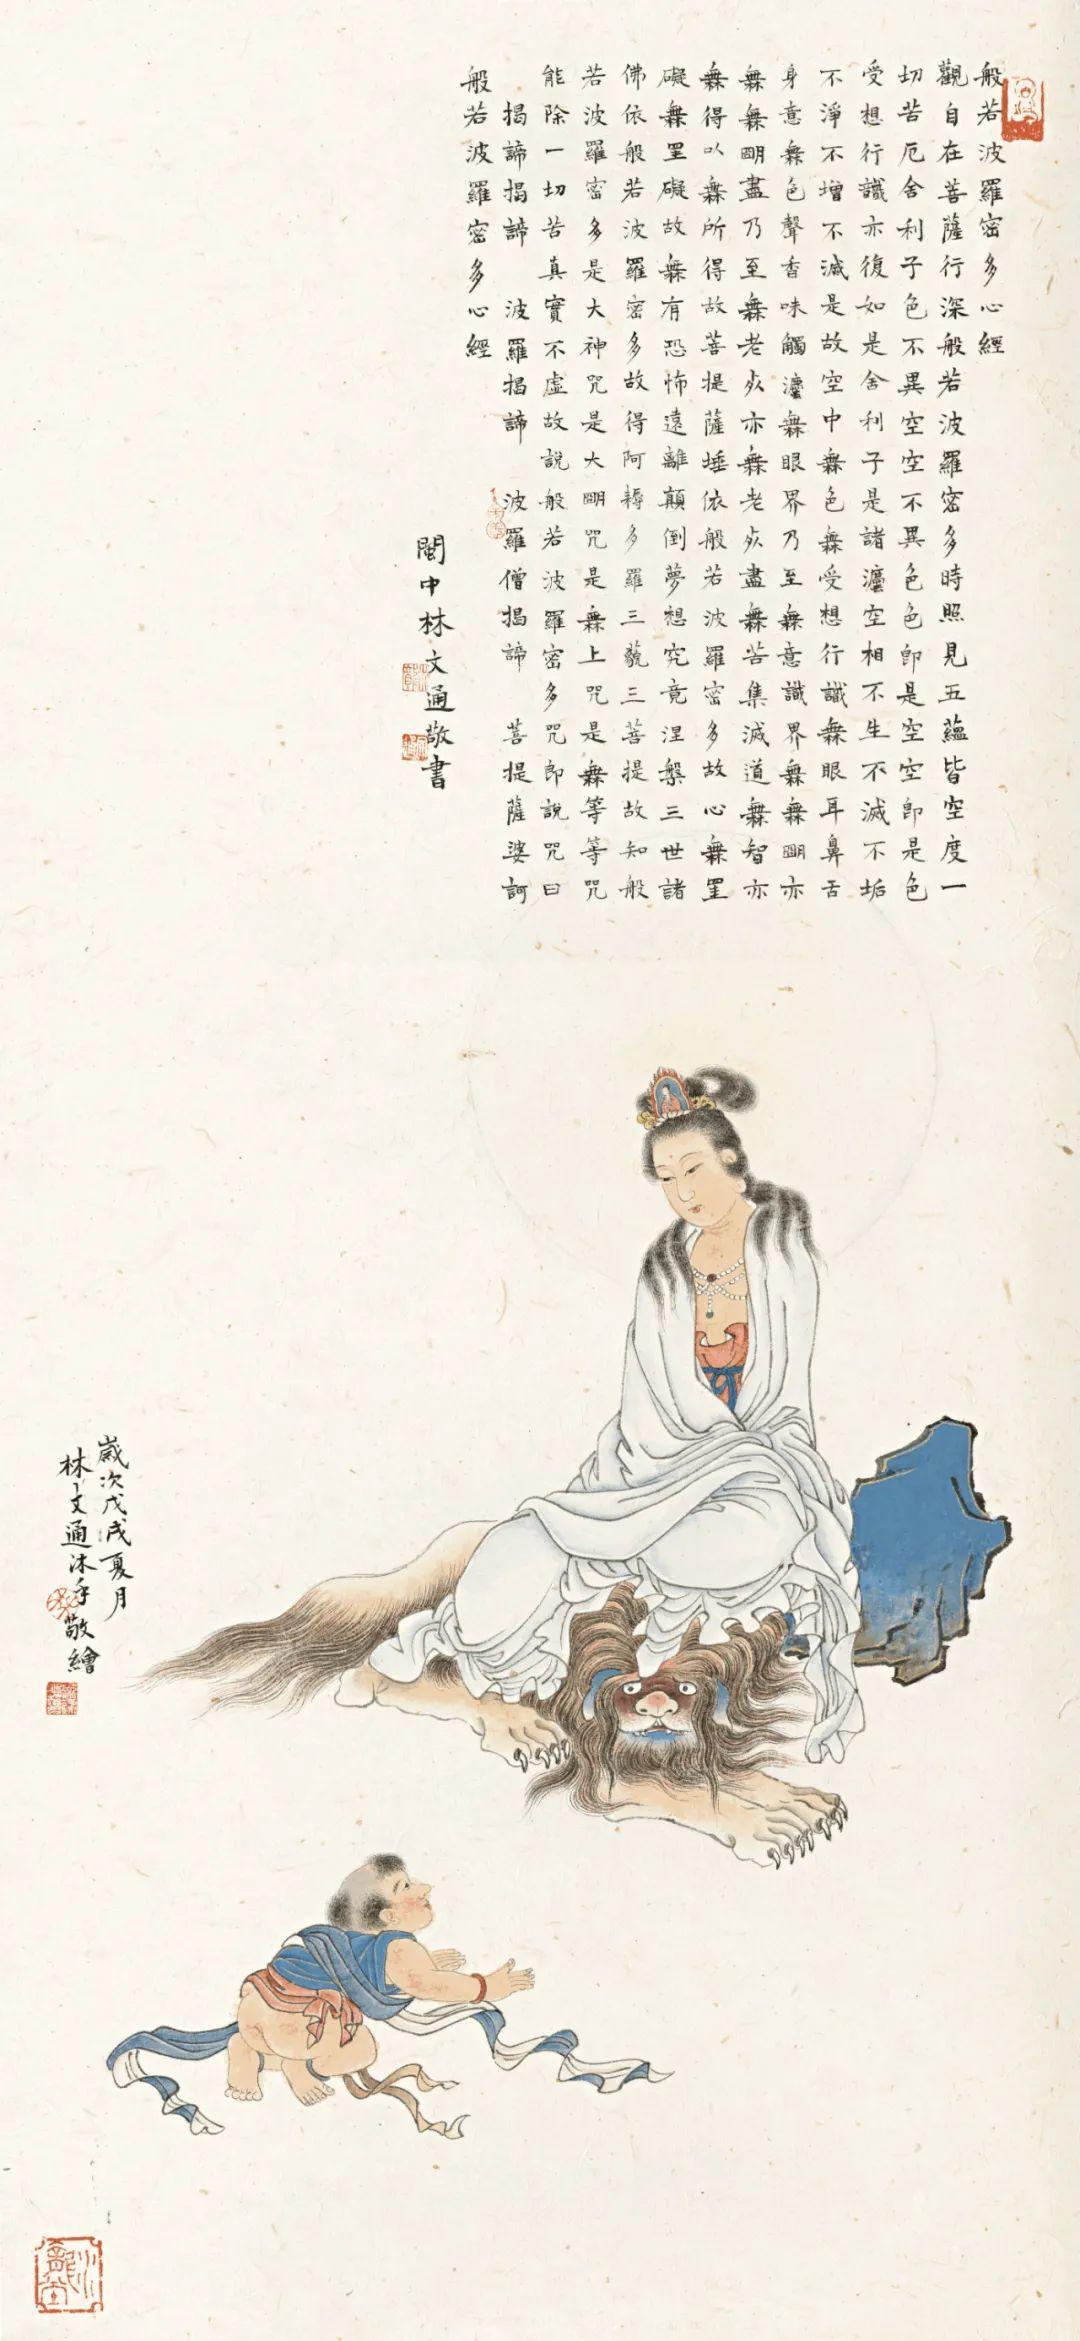 般若波羅密多心經
觀自在菩薩行深般若波羅密多時照見五蘊皆空度一
切苦厄舍利子色不異空空不異色色即是空空即是色
受想行識亦復如是舍利子是諸灋空相不生不滅不垢
不淨不增不減是故空中無色無受想行識無眼耳鼻舌
身意無色聲香味觸灋無眼界乃至無意識界無無朙亦
無無朙盡乃至無老死亦無老死盡無苦集滅道無智亦
無得以無所得故菩提薩埵依般若波羅密多故心無罣
礙無罣礙故無有恐怖遠離顛倒夢想究竟涅槃三世諸
佛依般若波羅密多故得阿耨多羅三藐三菩提故知般
若波羅密多是大神咒是大朙咒是無上咒是無等等咒
能除一切苦真實不虛故說般若波羅密多咒即說咒曰
揭諦揭諦 波羅揭諦 波羅僧揭諦 菩提薩婆訶
般若波羅密多心經
閩中林文通敬書
歲次戊戌夏月
林文通沐手敬繪